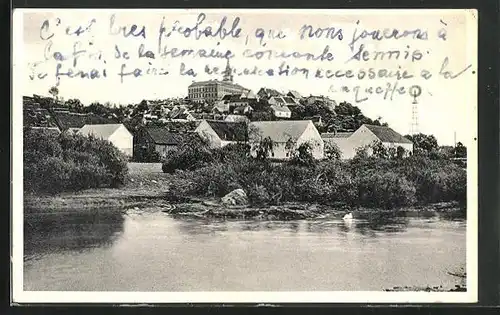 C'est tres probable, que nous jouerons à
la fin de la semaine courante Semip.
Je ferai faire la reparation necessaire a la
raquette